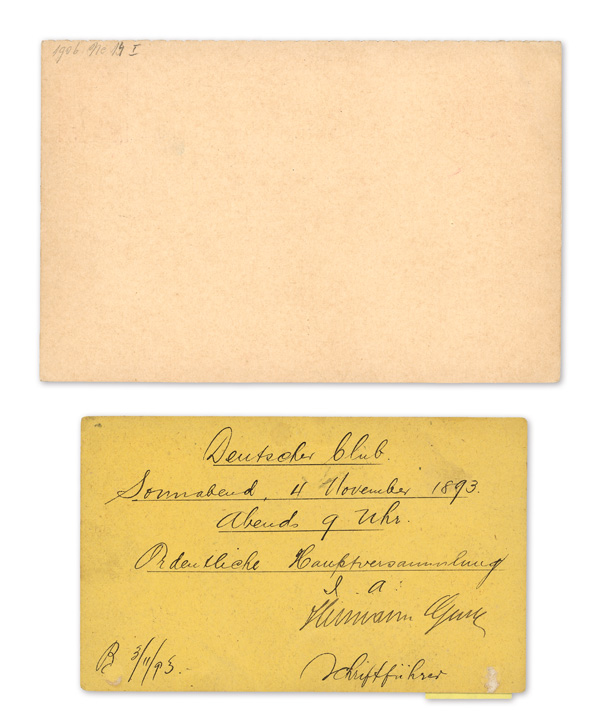 1906
I
Deutscher Club.
Sonnabend, 4 November 1893.
Abends 9 Uhr.
Ordentliche Hauptversammlung
I. A:
Hermann
B 3/11/93.
Schriftführer